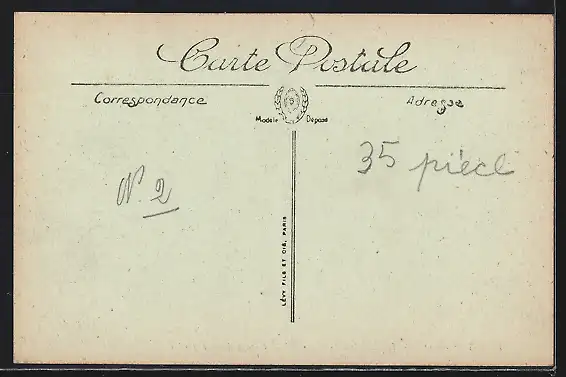 Carte Postale
Correspondance
Adresse
Modèle Déposé
N° 2
35 pièce
LÉVY FILS ET CIE, PARIS